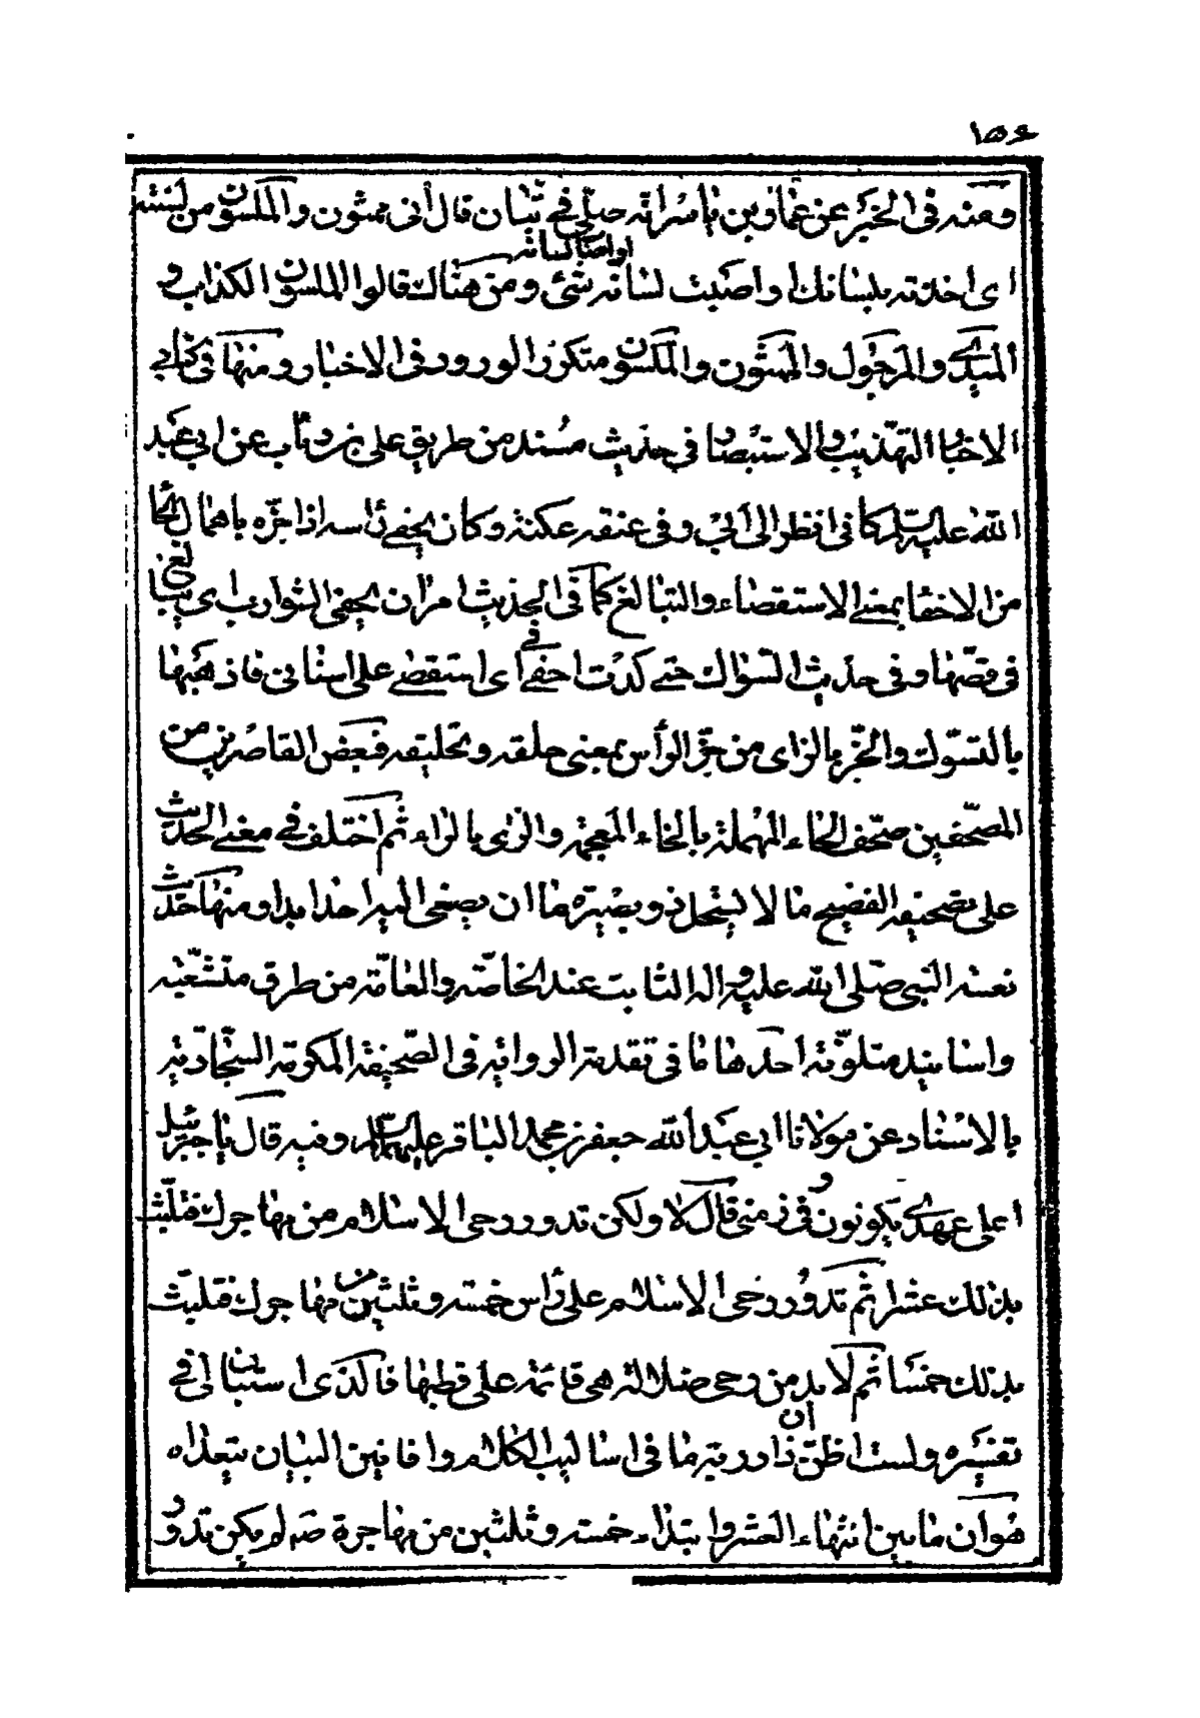 ١٥٤
ومنه فى الخبر عن عمار بن ياسر انه صلى فى تبان قال انى ممثون والملسون من لسنته
او اصاب لسانه
اى اخذته بلسانك او اصبت لسانه شئ ومن هنالك قالوا الملسون الكذاب و
المبدى والمرحول والممثون والملسون متكرر الورود فى الاخبار ومنها فى كتابى
الاخبار التهذيب والاستبصار فى حديث مسند من طريق على بن رئاب عن ابى عبد
الله عليه السلم كانى انظر الى ابى وفى عنقه عكنة وكان يحفى راسه اذا جزه باهمال الحا
من الاحفا بمعنى الاستقصاء والتبالغ كما فى الحديث امر ان يحفى الشوارب اى يبالغ
فى قصها وفى حديث السواك حتى كدت احفى فى اى استقصى على اسنانى فاذهبها
بالتسوك والجز بالزاى من جز الرأس بمعنى حلقه وتحليقه فبعض القاصرين من
المصحفين صحف الحاء المهملة بالخاء المعجمة والزاى بالراء ثم اختلف فى معنى الحديث
على تصحيفه الفضيح ما لا يستحل ذو بصيرة ما ان يصغى اليه احدا بدا ومنها حديث
نعسة النبى صلى الله عليه واله الثابت عند الخاصة والعامة من طرق متشعبة
واسانيد متلونة احدها ما فى تقدمة الرواية فى الصحيفة المكرمة السجادية
بالاسناد عن مولانا ابى عبد الله جعفر بن محمد الباقر عليهما السلم وفيه قال يا جبرئيل
اعلى عهدى يكونون وفى زمنى قال لا ولكن تدور رحى الاسلام من مهاجرك فتلبث
بذلك عشرا ثم تدور رحى الاسلام على رأس خمسة وثلثين من مهاجرك فتلبث
بذلك خمسا ثم لا بد من رحى ضلالة هى قائمة على قطبها فالذى استبان لى فى
تفسيره ولست اظن ان ذا دربة ما فى اساليب الكلام وافانين البيان يتعداه
هو ان ما بين انتهاء العشر وابتداء خمسة وثلثين من مهاجرة صه لم يكن تدور